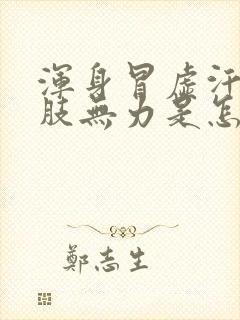 渾身冒虛汗
肢無力是怎
鄭志生